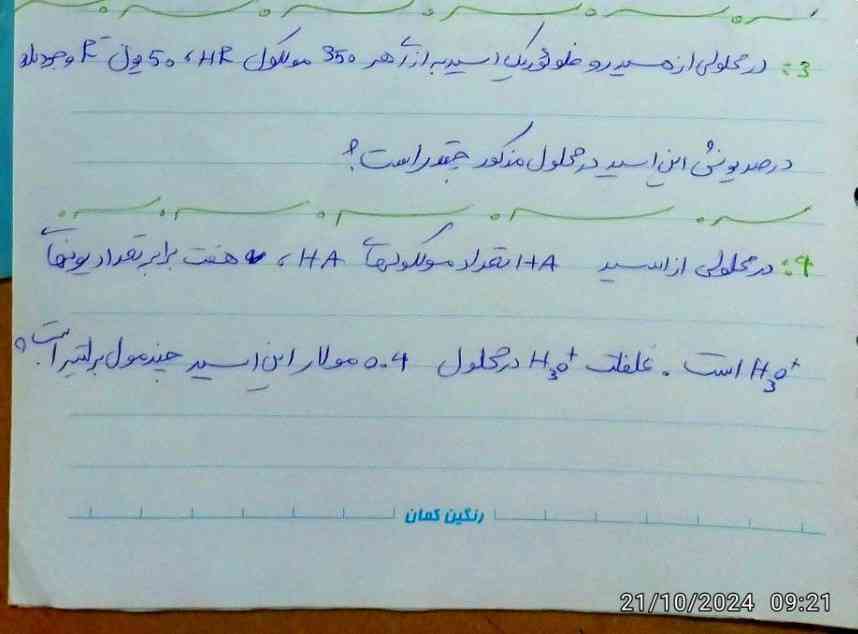 3: در محلولی از هیدروفلوئوریک اسید به ازای هر 350 مولکول HF ، 50 یون F⁻ وجود دارد
درصد یونش این اسید در محلول مذکور چقدر است؟
4: در محلولی از اسید HA تعداد مولکولهای HA ، هفت برابر تعداد یونهای
H₃O⁺ است . غلظت H₃O⁺ در محلول 0.4 مولار این اسید چند مول بر لیتر است؟
رنگین کمان
21/10/2024 09:21